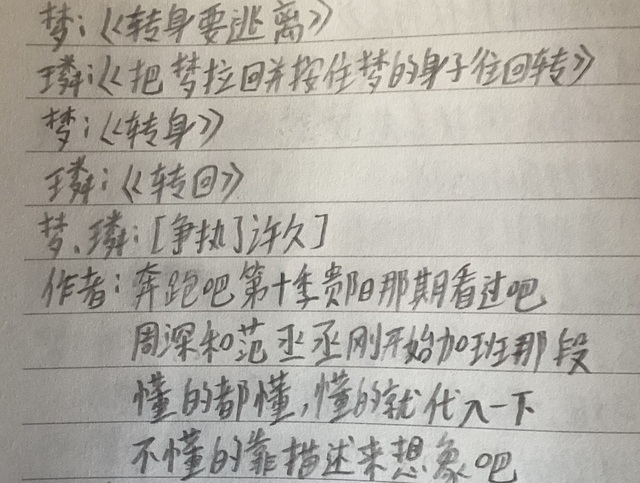 梦:《转身要逃离》
璘:《把梦拉回并按住梦的身子往回转》
梦:《转身》
璘:《转回》
梦、璘:[争执了许久]
作者:奔跑吧第十季贵阳那期看过吧
周深和范丞丞刚开始加班那段
懂的都懂,懂的就代入一下
不懂的靠描述来想象吧